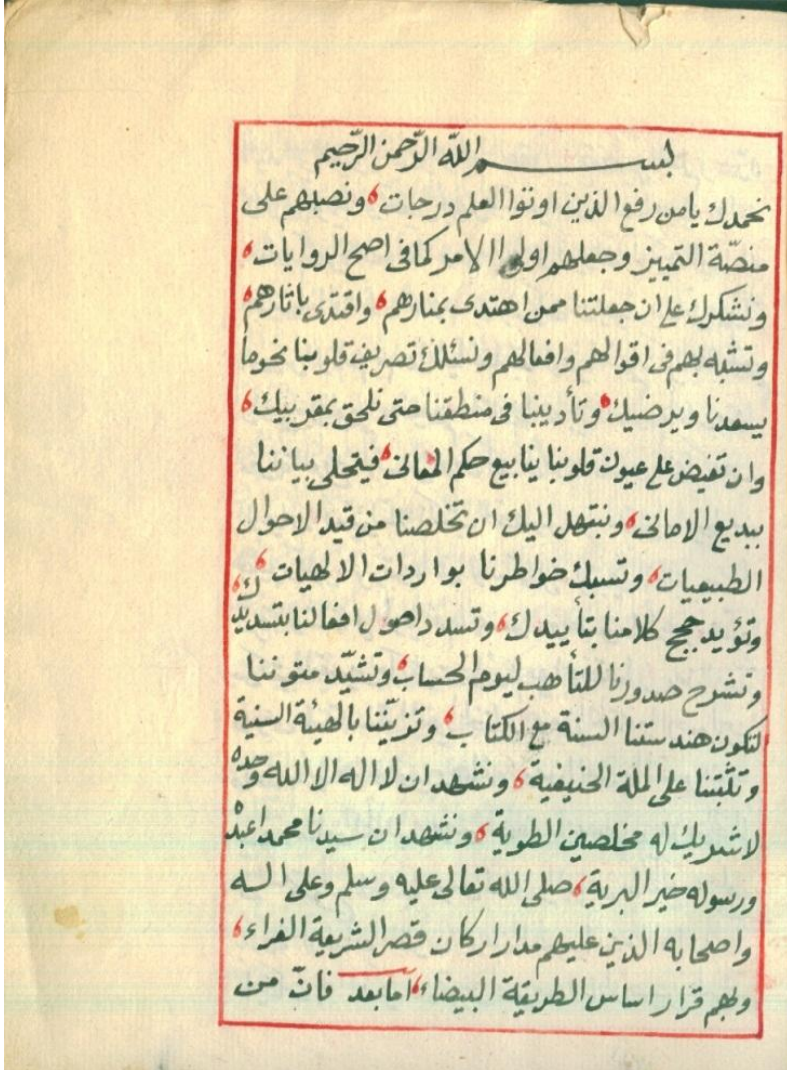 بسم الله الرّحمن الرّحيم
نحمدك يا من رفع الذين اوتوا العلم درجات، ونصبهم على
منصّة التمييز وجعلهم اولى الامر كما فى اصح الروايات،
ونشكرك على ان جعلتنا ممن اهتدى بمنارهم، واقتدى باثارهم،
وتشبه بهم فى اقوالهم وافعالهم ونسئلك تصريف قلوبنا نحوما
يسعدنا ويرضيك، وتأديبنا فى منطقنا حتى نلحق بمقربيك،
وان تفيض على عيون قلوبنا ينابيع حكم المعانى، فيتحلى بياننا
ببديع الامانى، ونبتهل اليك ان تخلصنا من قيد الاحوال
الطبيعيات، وتسبك خواطرنا بواردات الالهيات،
وتؤيد حجج كلامنا بتأييدك، وتسدد اصول افعالنا بتسديدك،
وتشرح صدورنا للتأهب ليوم الحساب، وتشيّد متوننا
لتكون هندستنا السنة مع الكتاب، وتزيّننا بالهيئة السنية
وتثبتنا على الملة الحنيفية، ونشهد ان لا اله الا الله وحده
لاشريك له مخلصين الطوية، ونشهد ان سيدنا محمدا عبده
ورسوله خير البرية، صلى الله تعالى عليه وسلم وعلى اله
واصحابه الذين عليهم مدار اركان قصر الشريعة الغراء،
وبهم قرار اساس الطريقة البيضاء، اما بعد فانّ من